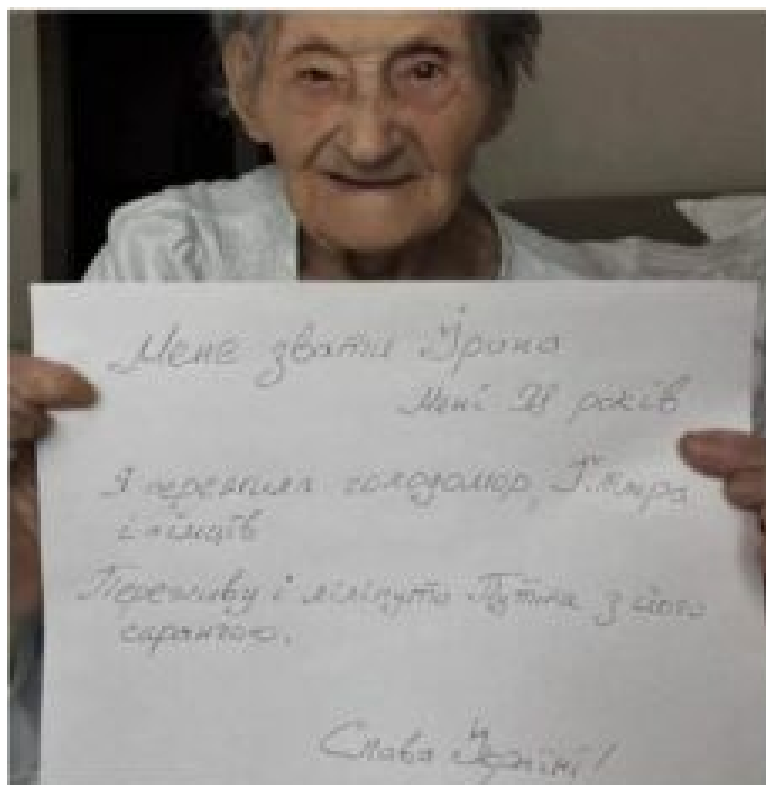 Мене звати Ірина
Мені років
Я пережила голодомор, Гітлера
і німців
Переживу і ліліпута Путіна з його
саранчою.
Слава Україні!